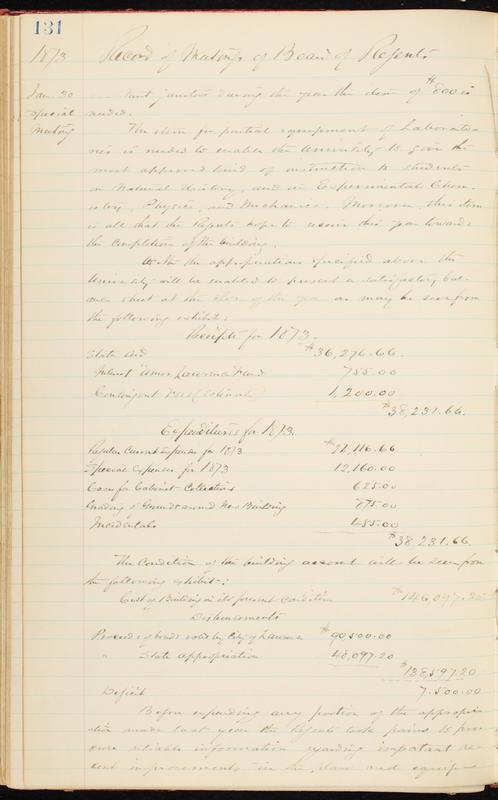 131
1873 Record of Meetings of Board of Regents
Jan. 30 janitor during the year the sum of $800 is
Special needed.
Meeting The item for partial equipment of Laborato-
ries is needed to enable the University to give the
most approved kind of instruction to students
in Natural History, and in Experimental Chem-
istry, Physics, and Mechanics. Moreover, this item
is all that the Regents hope to receive this year towards
the Completion of the building.
With the appropriations specified above the
University will be enabled to present a satisfactory bal-
ance sheet at the close of the year as may be seen from
the following exhibit:
Receipts for 1873.
State Aid $36,276.66.
Interest Amos Lawrence Fund 755.00
Contingent Fees (estimated) 1,200.00
$38,231.66.
Expenditures for 1873.
Regular Current Expenses for 1873 $24,116.66
Special Expenses for 1873 12,160.00
Cases for Cabinet Collections 625.00
Grading of Grounds around New Building 875.00
Incidentals 455.00
$38,231.66
The Condition of the building account will be seen from
the following exhibit:
Cost of Building in its present condition $146,097.20
Disbursements
Proceeds of bonds voted by City of Lawrence $90,500.00
" State appropriation 48,097.20
$138,597.20
Deficit 7,500.00
Before expending any portion of the appropri-
ation made last year the Regents took pains to pro-
cure reliable information regarding important re-
cent improvements in the plans and equip-